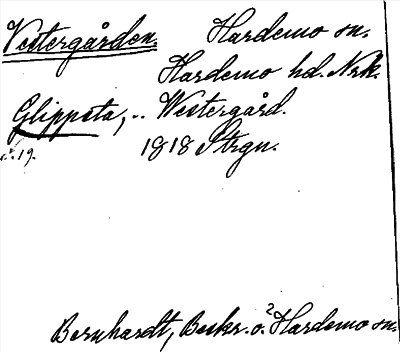 Vestergården. Hardemo sn.
Hardemo hd. Nrk.
Glippsta, .. Westergård.
1818 Strgn.
Bernhardt, Beskr. o. Hardemo sn.